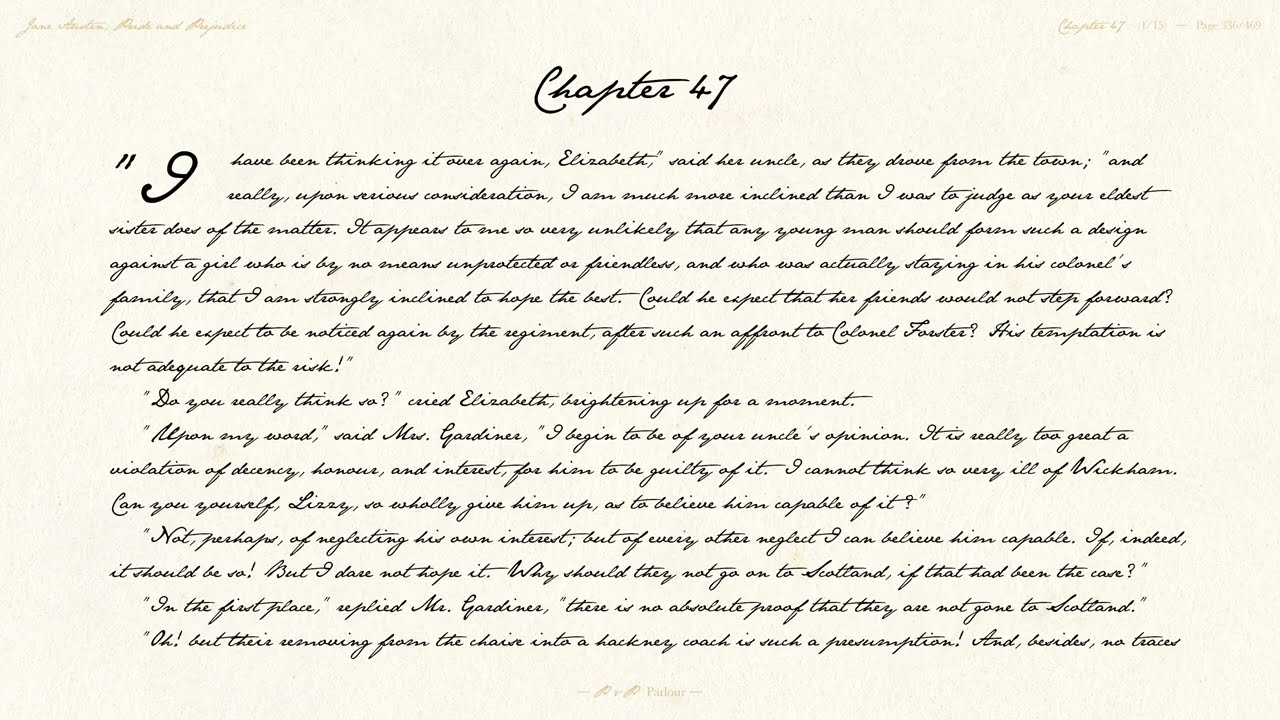 Jane Austen, Pride and Prejudice
Chapter 47 (1/15) — Page 336/469
Chapter 47
"I have been thinking it over again, Elizabeth," said her uncle, as they drove from the town; "and
really, upon serious consideration, I am much more inclined than I was to judge as your eldest
sister does of the matter. It appears to me so very unlikely that any young man should form such a design
against a girl who is by no means unprotected or friendless, and who was actually staying in his colonel's
family, that I am strongly inclined to hope the best. Could he expect that her friends would not step forward?
Could he expect to be noticed again by the regiment, after such an affront to Colonel Forster? His temptation is
not adequate to the risk!"
"Do you really think so?" cried Elizabeth, brightening up for a moment.
"Upon my word," said Mrs. Gardiner, "I begin to be of your uncle's opinion. It is really too great a
violation of decency, honour, and interest, for him to be guilty of it. I cannot think so very ill of Wickham.
Can you yourself, Lizzy, so wholly give him up, as to believe him capable of it?"
"Not, perhaps, of neglecting his own interest; but of every other neglect I can believe him capable. If, indeed,
it should be so! But I dare not hope it. Why should they not go on to Scotland, if that had been the case?"
"In the first place," replied Mr. Gardiner, "there is no absolute proof that they are not gone to Scotland."
"Oh! but their removing from the chaise into a hackney coach is such a presumption! And, besides, no traces
— P & P Parlour —